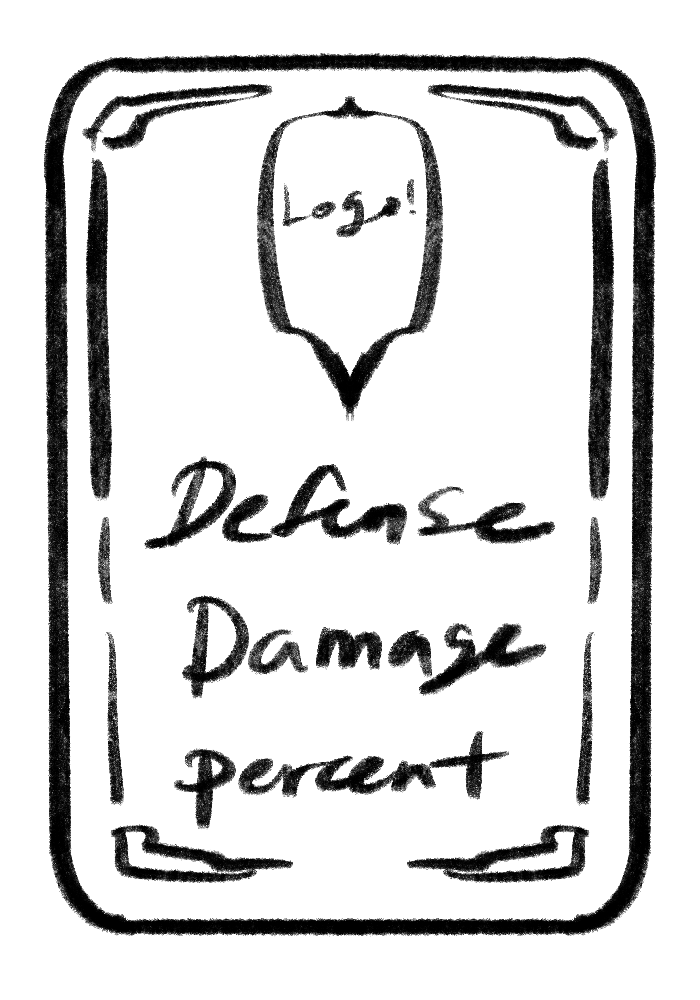 Logo!
Defense
Damage
percent